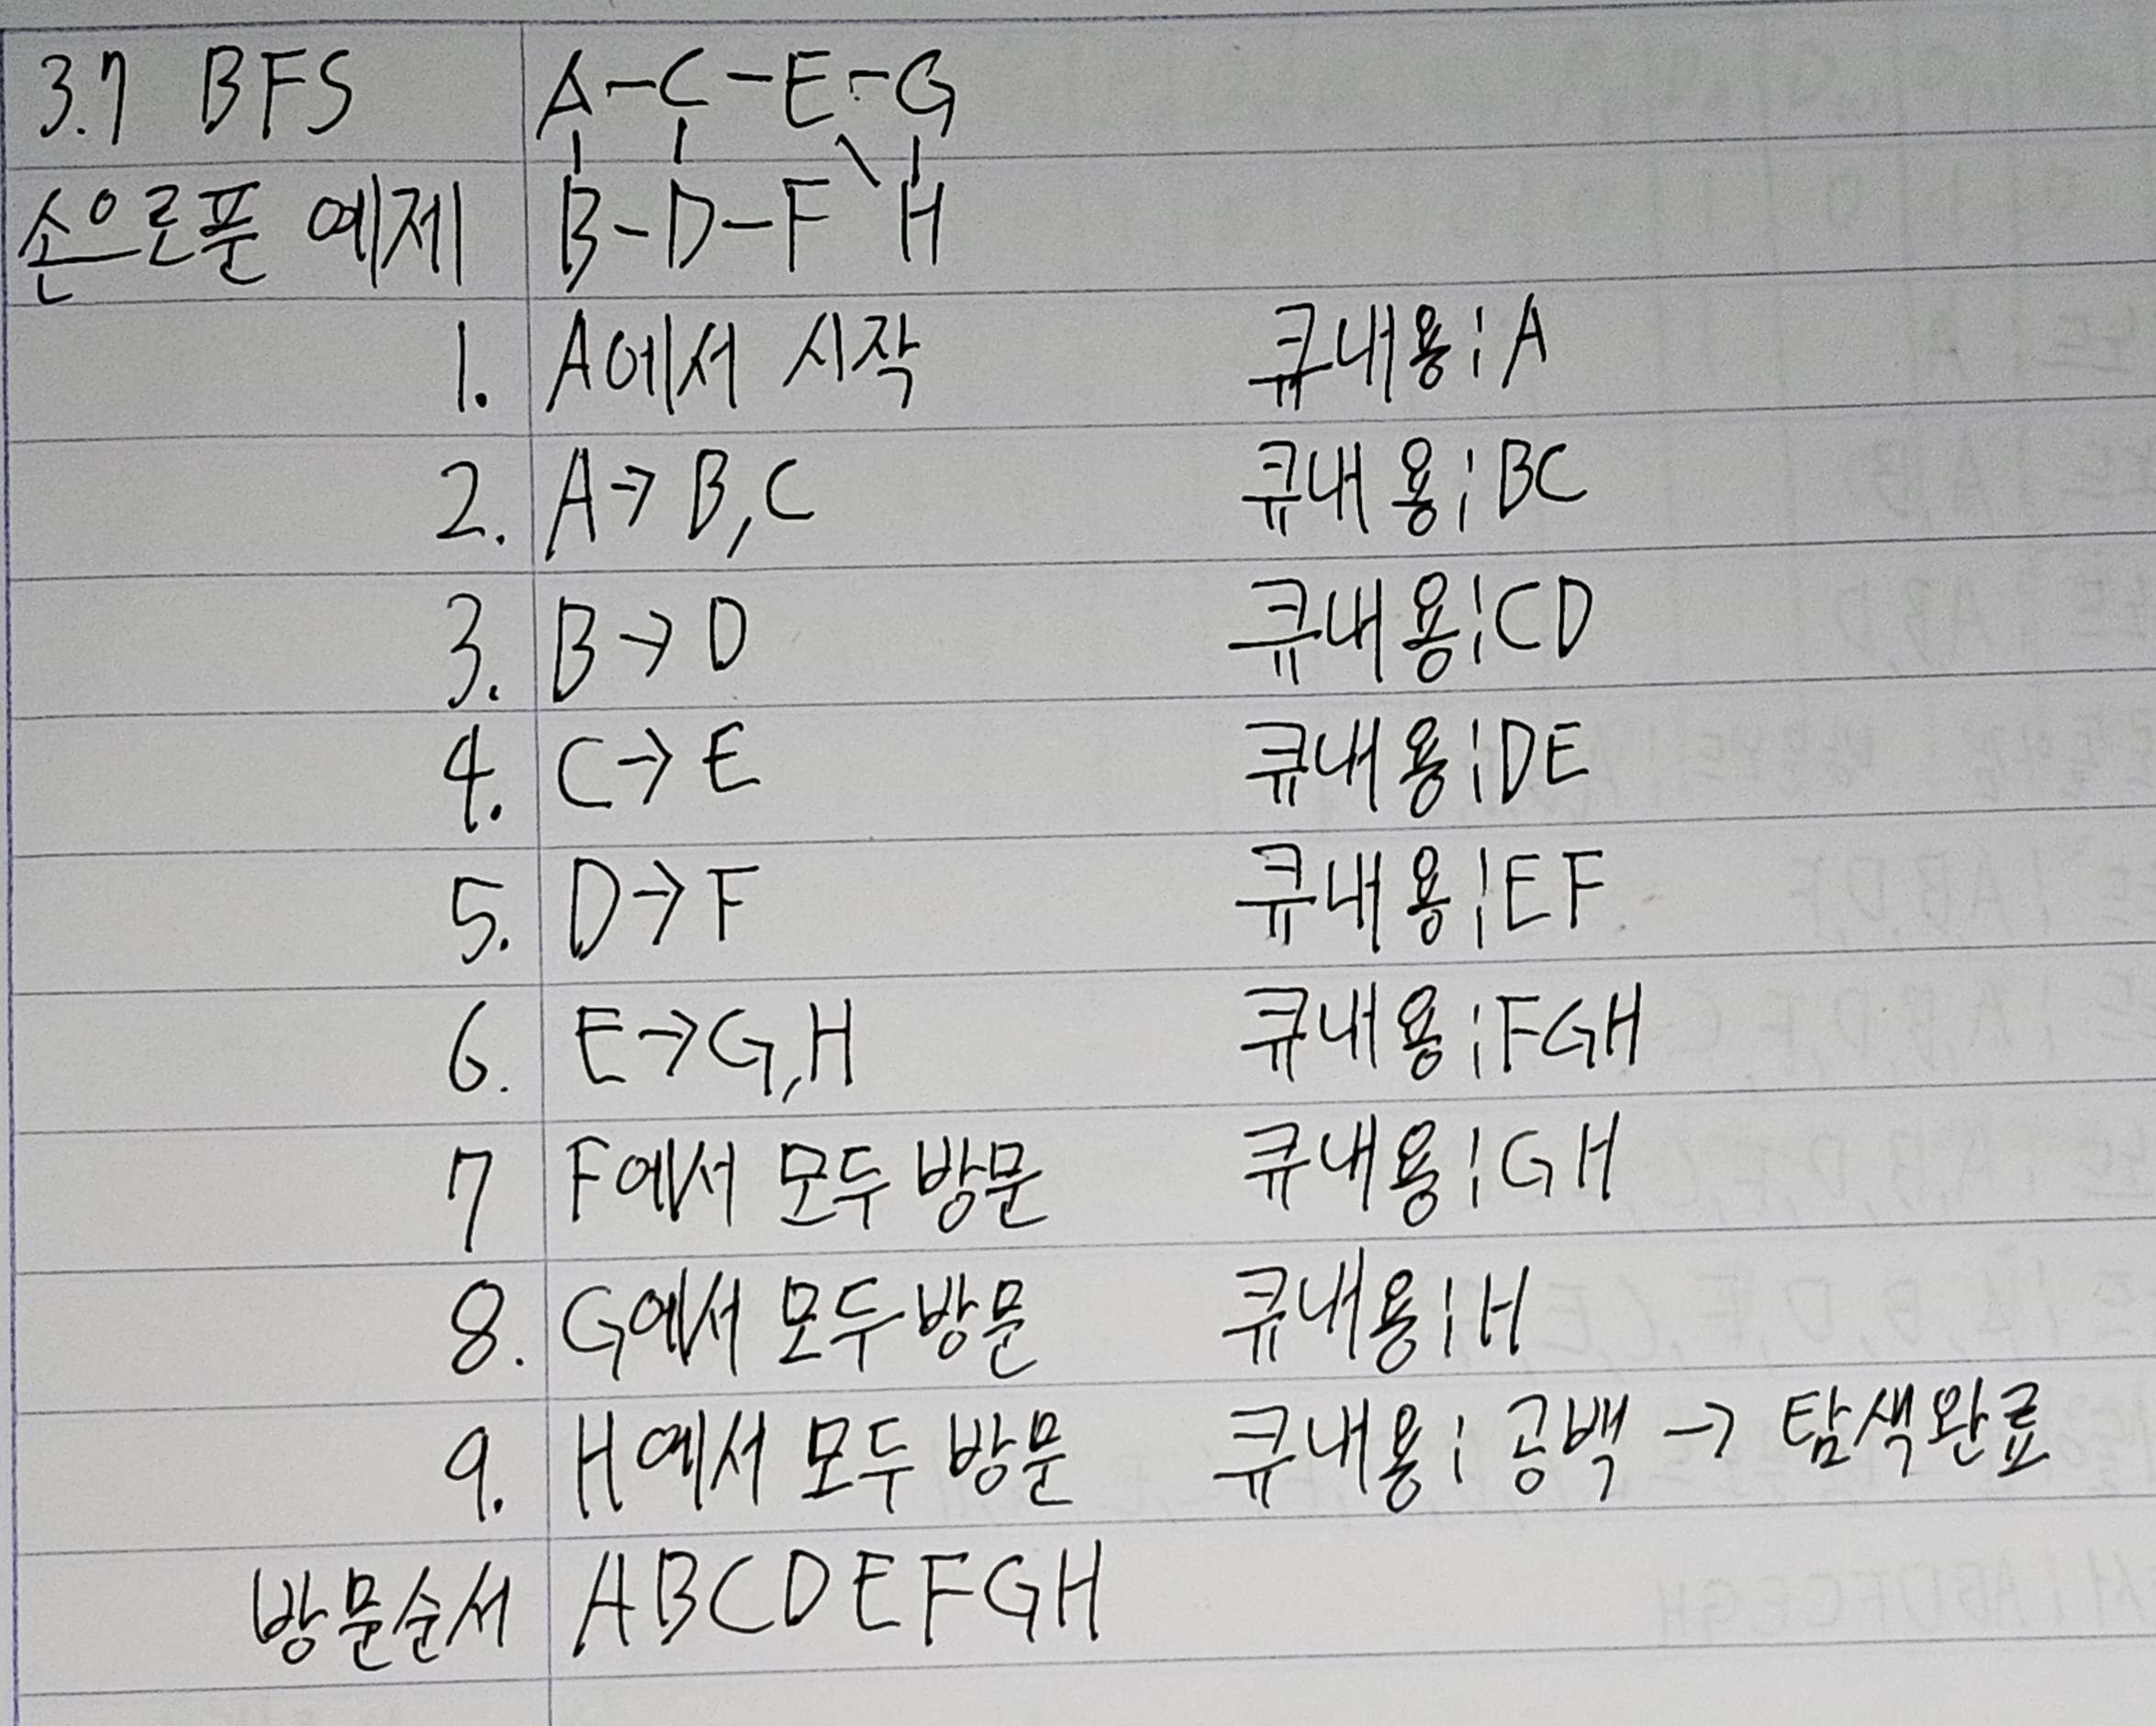 3.7 BFS A-C-E-G
손으로푼 예제 B-D-F H
1. A에서 시작 큐내용: A
2. A→B,C 큐내용: BC
3. B→D 큐내용: CD
4. C→E 큐내용: DE
5. D→F 큐내용: EF
6. E→G,H 큐내용: FGH
7 F에서 모두 방문 큐내용: GH
8. G에서 모두 방문 큐내용: H
9. H에서 모두 방문 큐내용: 공백 → 탐색완료
방문순서 ABCDEFGH